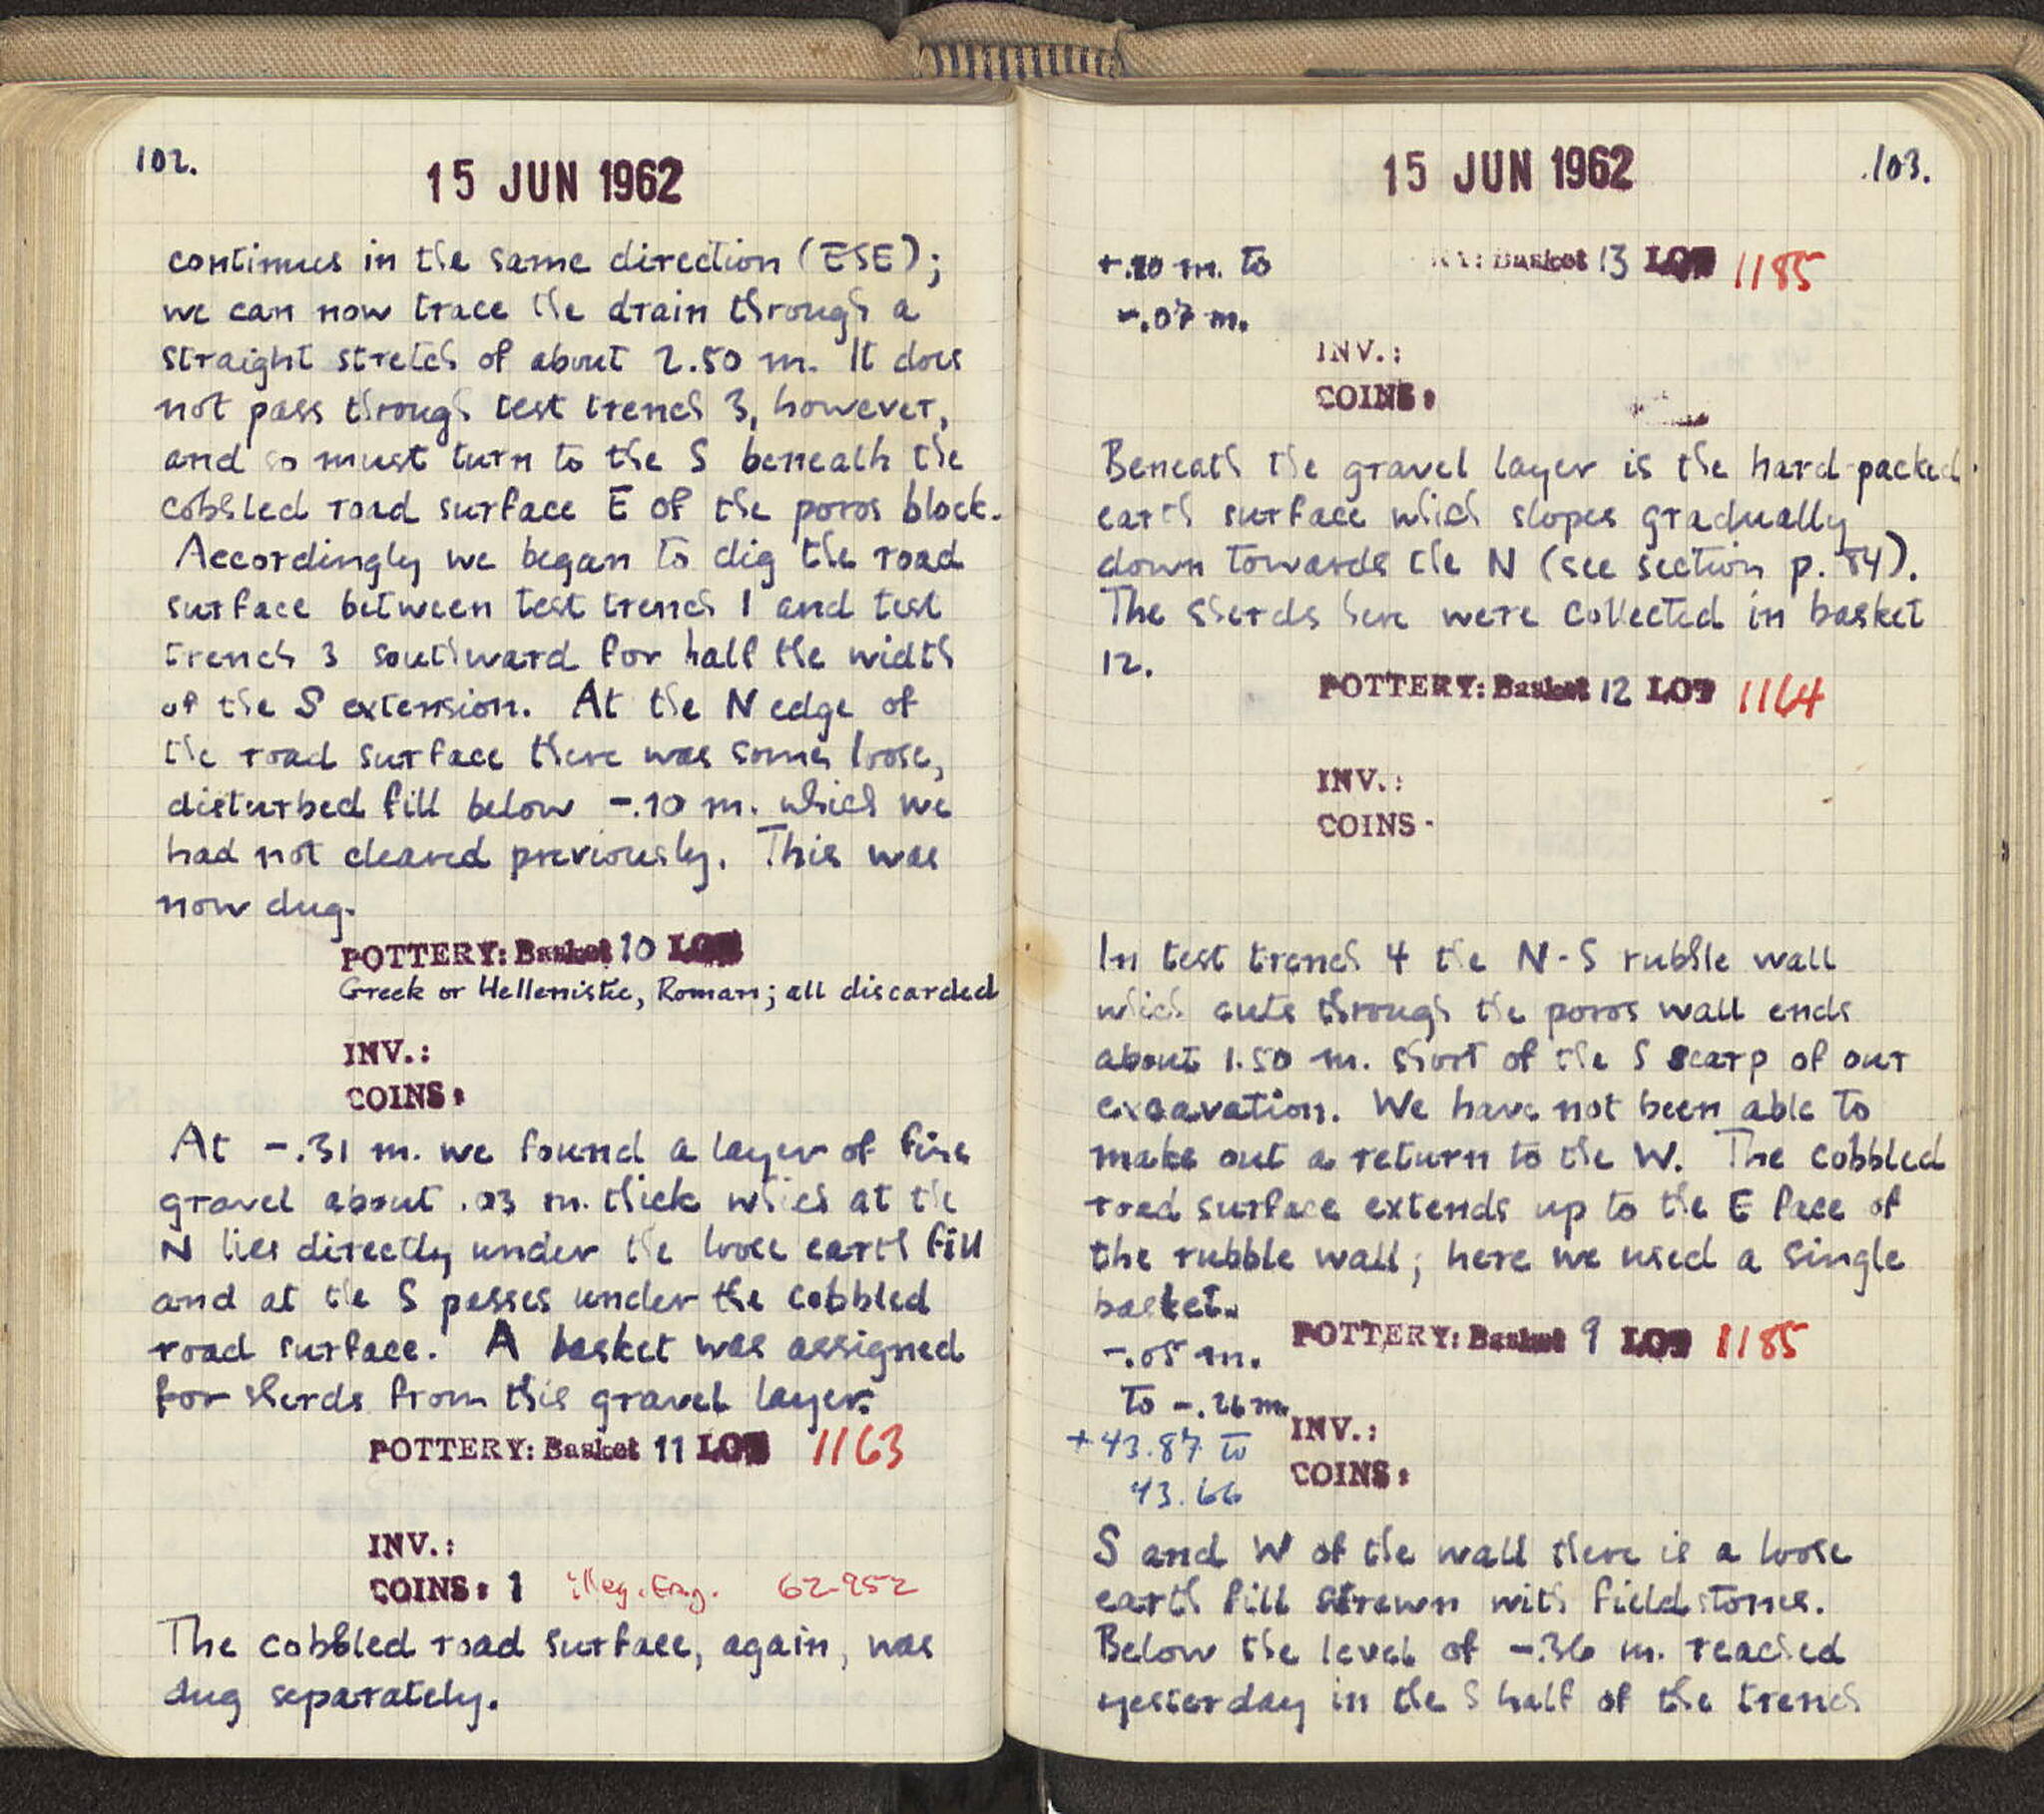 102.
15 JUN 1962
continues in the same direction (ESE);
we can now trace the drain through a
straight stretch of about 2.50 m. It does
not pass through test trench 3, however,
and so must turn to the S beneath the
cobbled road surface E of the poros block.
Accordingly we began to dig the road
surface between test trench 1 and test
trench 3 southward for half the width
of the S extension. At the N edge of
the road surface there was some loose,
disturbed fill below -.10 m. which we
had not cleared previously. This was
now dug.
POTTERY: Basket 10 LOT
Greek or Hellenistic, Roman; all discarded
INV.:
COINS:
At -.31 m. we found a layer of fine
gravel about .03 m. thick which at the
N lies directly under the loose earth fill
and at the S passes under the cobbled
road surface. A basket was assigned
for sherds from this gravel layer.
POTTERY: Basket 11 LOT 1163
INV.:
COINS: 1 illeg. frag. 62-952
The cobbled road surface, again, was
dug separately.
15 JUN 1962
103.
+.10 m. to
-.07 m.
RY: Basket 13 LOT 1185
INV.:
COINS:
Beneath the gravel layer is the hard-packed
earth surface which slopes gradually
down towards the N (see section p. 84).
The sherds here were collected in basket
12.
POTTERY: Basket 12 LOT 1164
INV.:
COINS
In test trench 4 the N-S rubble wall
which cuts through the poros wall ends
about 1.50 m. short of the S scarp of our
excavation. We have not been able to
make out a return to the W. The cobbled
road surface extends up to the E face of
the rubble wall; here we used a single
basket.
-.05 m.
to -.26 m.
+43.87 to
43.66
POTTERY: Basket 9 LOT 1185
INV.:
COINS:
S and W of the wall there is a loose
earth fill strewn with fieldstones.
Below the level of -.36 m. reached
yesterday in the S half of the trench